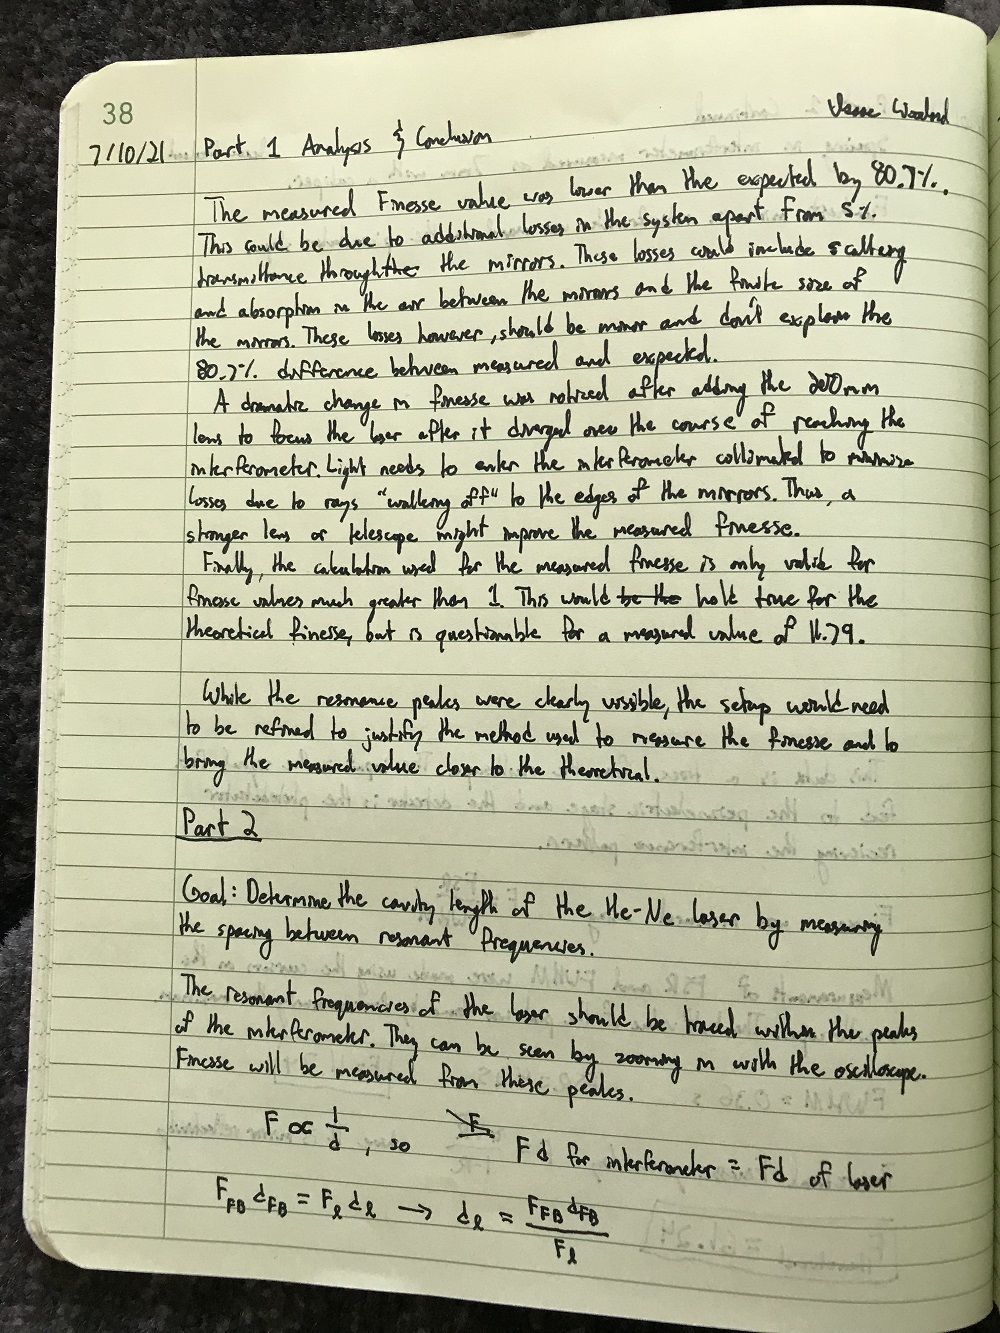 38
7/10/21 Part 1 Analysis & Conclusion
The measured Finesse value was lower than the expected by 80.7%.
This could be due to additional losses in the system apart from 5%
transmittance through the the mirrors. These losses could include scattering
and absorption in the air between the mirrors and the finite size of
the mirrors. These losses however, should be minor and don't explain the
80.7% difference between measured and expected.
A dramatic change in finesse was noticed after adding the 200mm
lens to focus the laser after it diverged over the course of reaching the
interferometer. Light needs to enter the interferometer collimated to minimize
losses due to rays "walking off" to the edges of the mirrors. Thus, a
stronger lens or telescope might improve the measured finesse.
Finally, the calculation used for the measured finesse is only valid for
finesse values much greater than 1. This would be the hold true for the
theoretical finesse, but is questionable for a measured value of 11.79.
While the resonance peaks were clearly vissible, the setup would need
to be refined to justify the method used to measure the finesse and to
bring the measured value closer to the theoretical.
Part 2
Goal: Determine the cavity length of the He-Ne laser by measuring
the spacing between resonant frequencies.
The resonant frequencies of the laser should be traced within the peaks
of the interferometer. They can be seen by zooming in with the oscilloscope.
Finesse will be measured from these peaks.
F ∝ 1/d, so Fd for interferometer = Fd of laser
F_FB d_FB = F_ℓ d_ℓ → d_ℓ = F_FB d_FB / F_ℓ